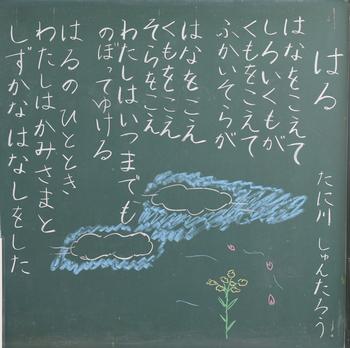 はる
たに川 しゅんたろう
はなをこえて
しろいくもが
くもをこえて
ふかいそらが
はなをこえ
くもをこえ
そらをこえ
わたしはいつまでも
のぼってゆける
はるのひととき
わたしはかみさまと
しずかなはなしをした